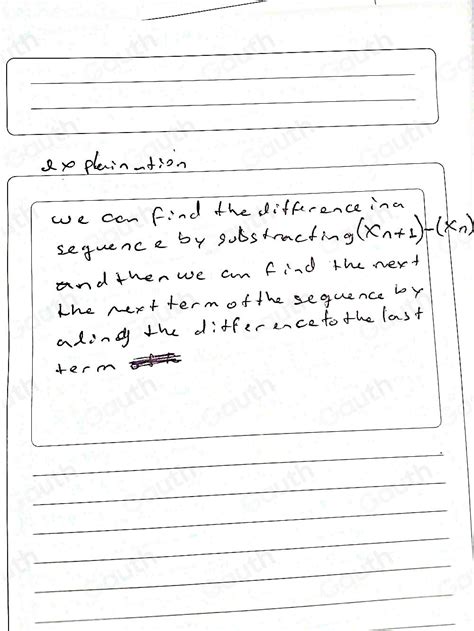 explaination
we can find the difference in a
sequence by substracting (Xn+1)-(Xn)
and then we can find the next
the next term of the sequence by
ading the difference to the last
term